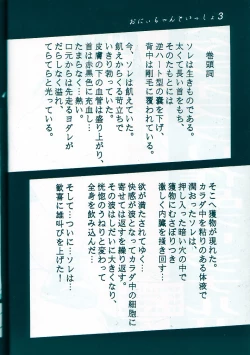 おにいちゃんといっしょ 3
巻頭詞
ソレは生きものである。
太くて長い首をもち、
そのたもとには
逆ハート型の嚢を下げ、
背中は剛毛に覆われている。
今、ソレは飢えていた。
飢えからくる苛立ちで
いきり勃っていた。
皮膚の下の血管は盛り上がり、
首は赤黒色に充血し…
たまらなく…熱い。
口元からは先走るヨダレが
だらしなく溢れ、
てらてらと光っている。
そこへ獲物が現れた。
カラダ中を粘りのある体液で
潤おったソレは、
押し入った暗い穴の中で
獲物にむさぼりつき
激しく内臓を掻き回す…
欲が満たされてゆく…
快感が波となってカラダ中の細胞に
寄せては返すを繰り返す。
その波はしだいに大きくなり、
恍惚のうねりと変わって
全身を飲み込んだ…
そして…ついに…ソレは…
歓喜に雄叫びを上げた！